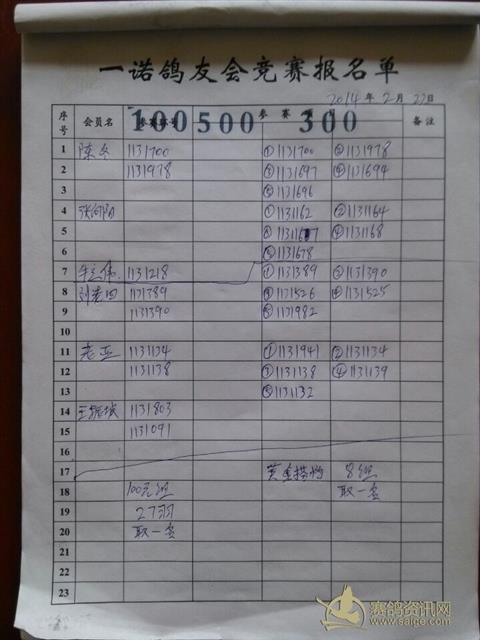 一诺鸽友会竞赛报名单
2014 年 2 月 22 日
序号 会员名 100 500 参赛 300 备注
1 陈冬 1131700 ①1131700 ②1131978
2 1131978 ③1131697 ④1131694
3 ⑤1131696
4 张向阳 ①1131162 ②1131164
5 ④1131168
6 ⑤1131678
7 1131218 ①1131389 ②1131390
8 1131389 ③1131526 ④1131525
9 1131390 ⑤1131982
10
11 老亚 1131134 ①1131941 ②1131134
12 1131138 ③1131138 ④1131139
13 ⑤1131132
14 1131803
15 1131091
16
17 黄金搭档 8组
18 100元组 取一名
19 27羽
20 取一名
21
22
23
赛鸽资讯网
www.saige.com